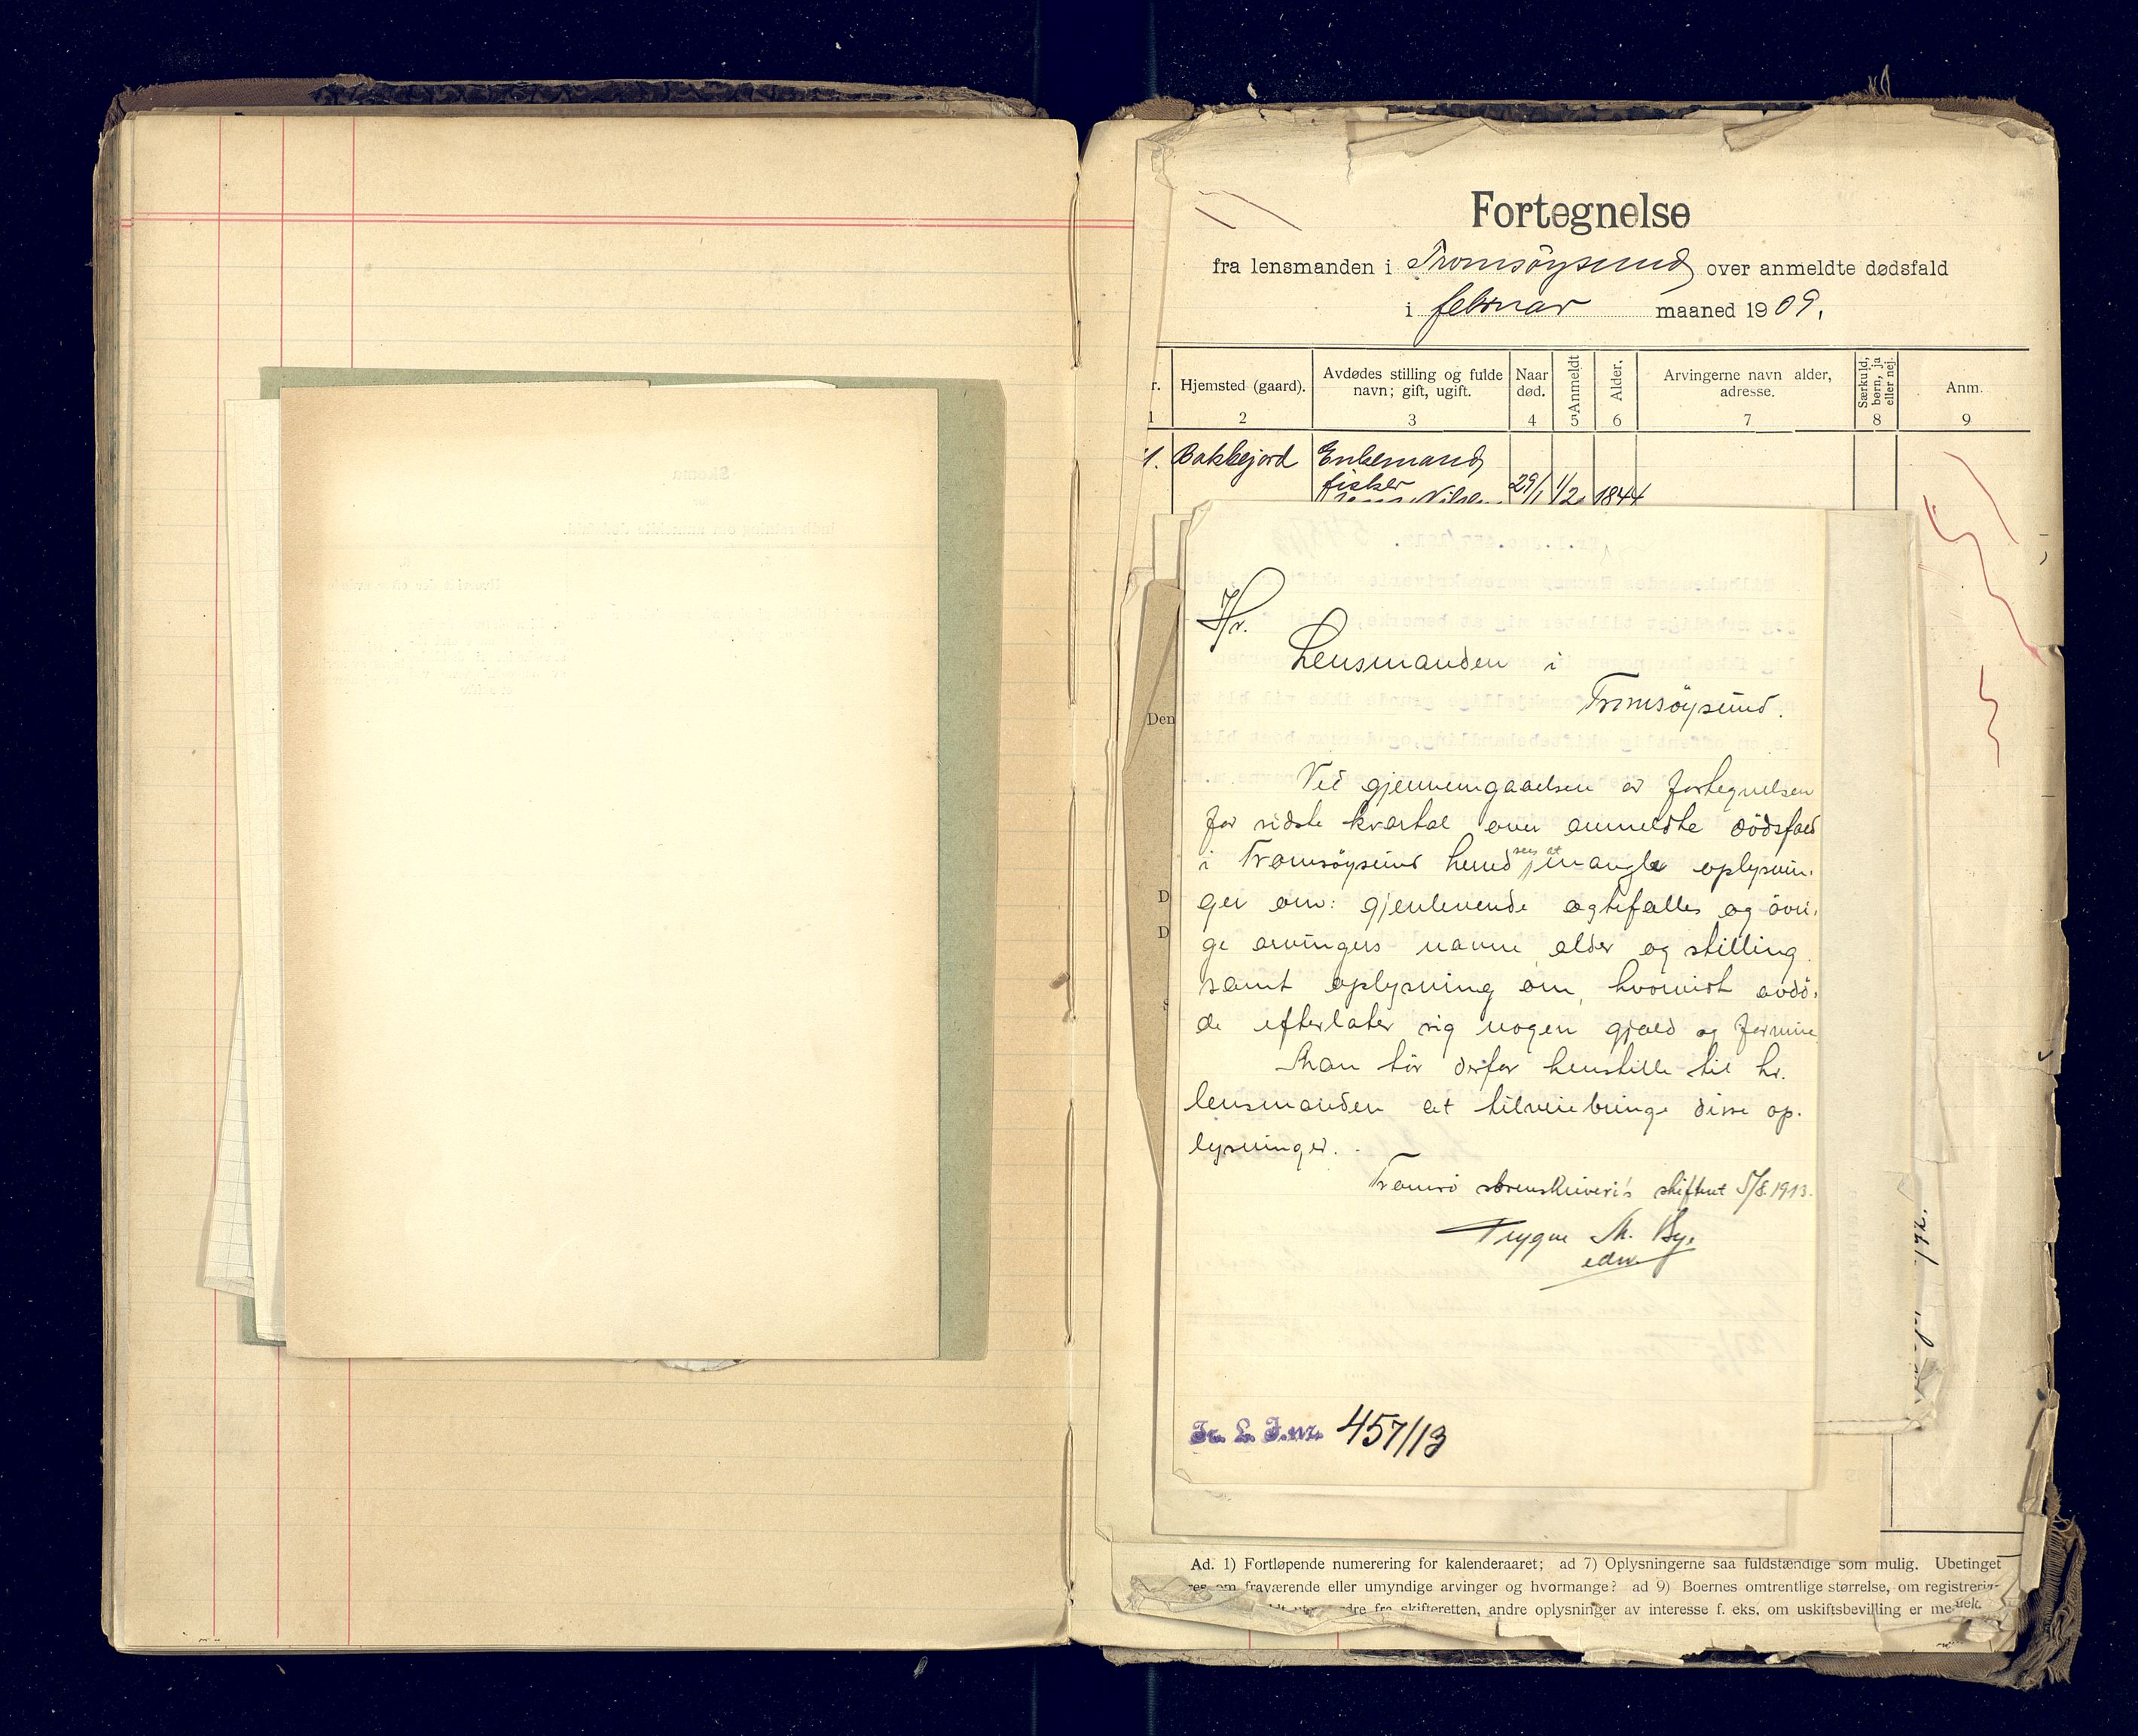 Fortegnelse
fra lensmanden i Tromsöysund over anmeldte dødsfald
i februar maaned 1909.
r. Hjemsted (gaard). Avdødes stilling og fulde navn; gift, ugift. Naar død. Anmeldt Alder. Arvingerne navn alder, adresse. Særkuld, børn, ja eller nej. Anm.
1 2 3 4 5 6 7 8 9
1. Bakkejord Enkemand
fisker 29/1 1/2 1844
Nilsen
Hr.
Lensmanden i
Tromsöysund.
Ved gjennemgaaelsen av fortegnelsen
for sidste kvartal over anmeldte dödsfald
i Tromsöysund herred sees at mangle oplysnin-
ger om: gjenlevende ægtefælles og övri-
ge arvingers navne, alder og stilling
samt oplysning om, hvorvidt avdö-
de efterlater sig nogen gjæld og formue
Man tör derfor henstille til hr.
lensmanden at tilveiebringe disse op-
lysninger.
Tromsö sorenskriveri's skifteret 5/8. 1913.
Trygve M. Bye
edv.
Tr. L. J.nr. 457/13
Den
D
D
Ad. 1) Fortløpende numerering for kalenderaaret; ad 7) Oplysningerne saa fuldstændige som mulig. Ubetinget
om fraværende eller umyndige arvinger og hvormange? ad 9) Boernes omtrentlige størrelse, om registrerin-
fra skifteretten, andre oplysninger av interesse f. eks. om uskiftsbevilling er